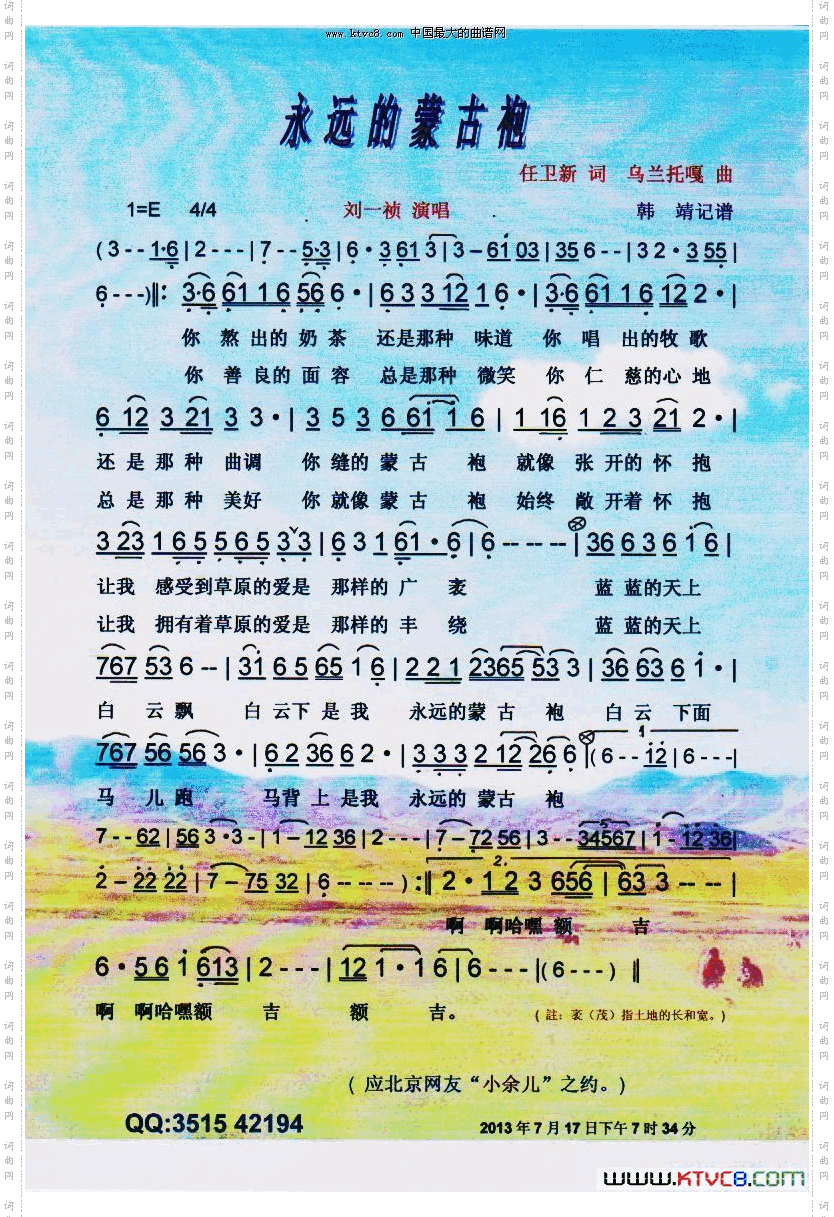 www.ktvc8.com 中国最大的曲谱网
永远的蒙古袍
任卫新 词 乌兰托嘎 曲
1=E 4/4 刘一祯 演唱 韩 靖记谱
(3--1·6|2---|7--5·3|6·3613|3-6103|356--|32·355|
6---)‖:3·6 6116566·|6331216·|3·66116122·|
你 熬 出的 奶 茶 还是那种 味道 你 唱 出的牧 歌
你 善 良的 面 容 总是那种 微笑 你 仁 慈的心 地
6 12 3 21 3 3·|3 5 3 6 61·1 6|1 16 1 2 3 21 2·|
还 是 那 种 曲调 你 缝的 蒙 古 袍 就像 张 开的 怀 抱
总 是 那 种 美好 你 就像 蒙 古 袍 始终 敞 开着 怀 抱
3 23 1 6 5 5 6 5 3·3|6 3 1 61·6|6------|36 6 3 6 1 6|
让我 感受到草原的爱是 那样的 广 袤 蓝 蓝的天上
让我 拥有着草原的爱是 那样的 丰 绕 蓝 蓝的天上
767 53 6--|31 6 5 65 1 6|2 2 1 2365 53 3|36 63 6 1·|
白 云 飘 白 云下 是 我 永远的蒙 古 袍 白 云 下面
767 56 56 3·|6 2 36 6 2·|3 3 3 2 12 26 6|(6--12|6---|
马 儿 跑 马背 上 是我 永远的 蒙古 袍
7--62|56 3·3-|1-12 36|2---|7-72 56|3--34567|1-12 36|
2-22 22|7-75 32|6----):‖2·1 2 3 656|63 3---|
啊 啊哈嘿 额 吉
6·5 6 1 613|2---|12 1·1 6|6---|(6---)‖
啊 啊哈嘿额 吉 额 吉。 (註:袤(茂)指土地的长和宽。)
(应北京网友“小余儿”之约。)
QQ:3515 42194 2013年7月17日下午7时34分
www.KTVC8.com